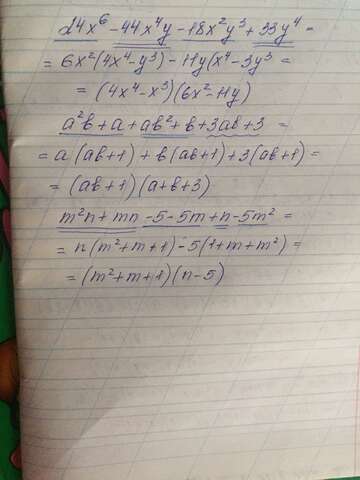 24x⁶-44x⁴y-18x²y³+33y⁴=
=6x²(4x⁴-y³)-11y(x⁴-3y³=
=(4x⁴-x³)(6x²-11y)
a²b+a+ab²+b+3ab+3=
=a(ab+1)+b(ab+1)+3(ab+1)=
=(ab+1)(a+b+3)
m²n+mn-5-5m+n-5m²=
=n(m²+m+1)-5(1+m+m²)=
=(m²+m+1)(n-5)